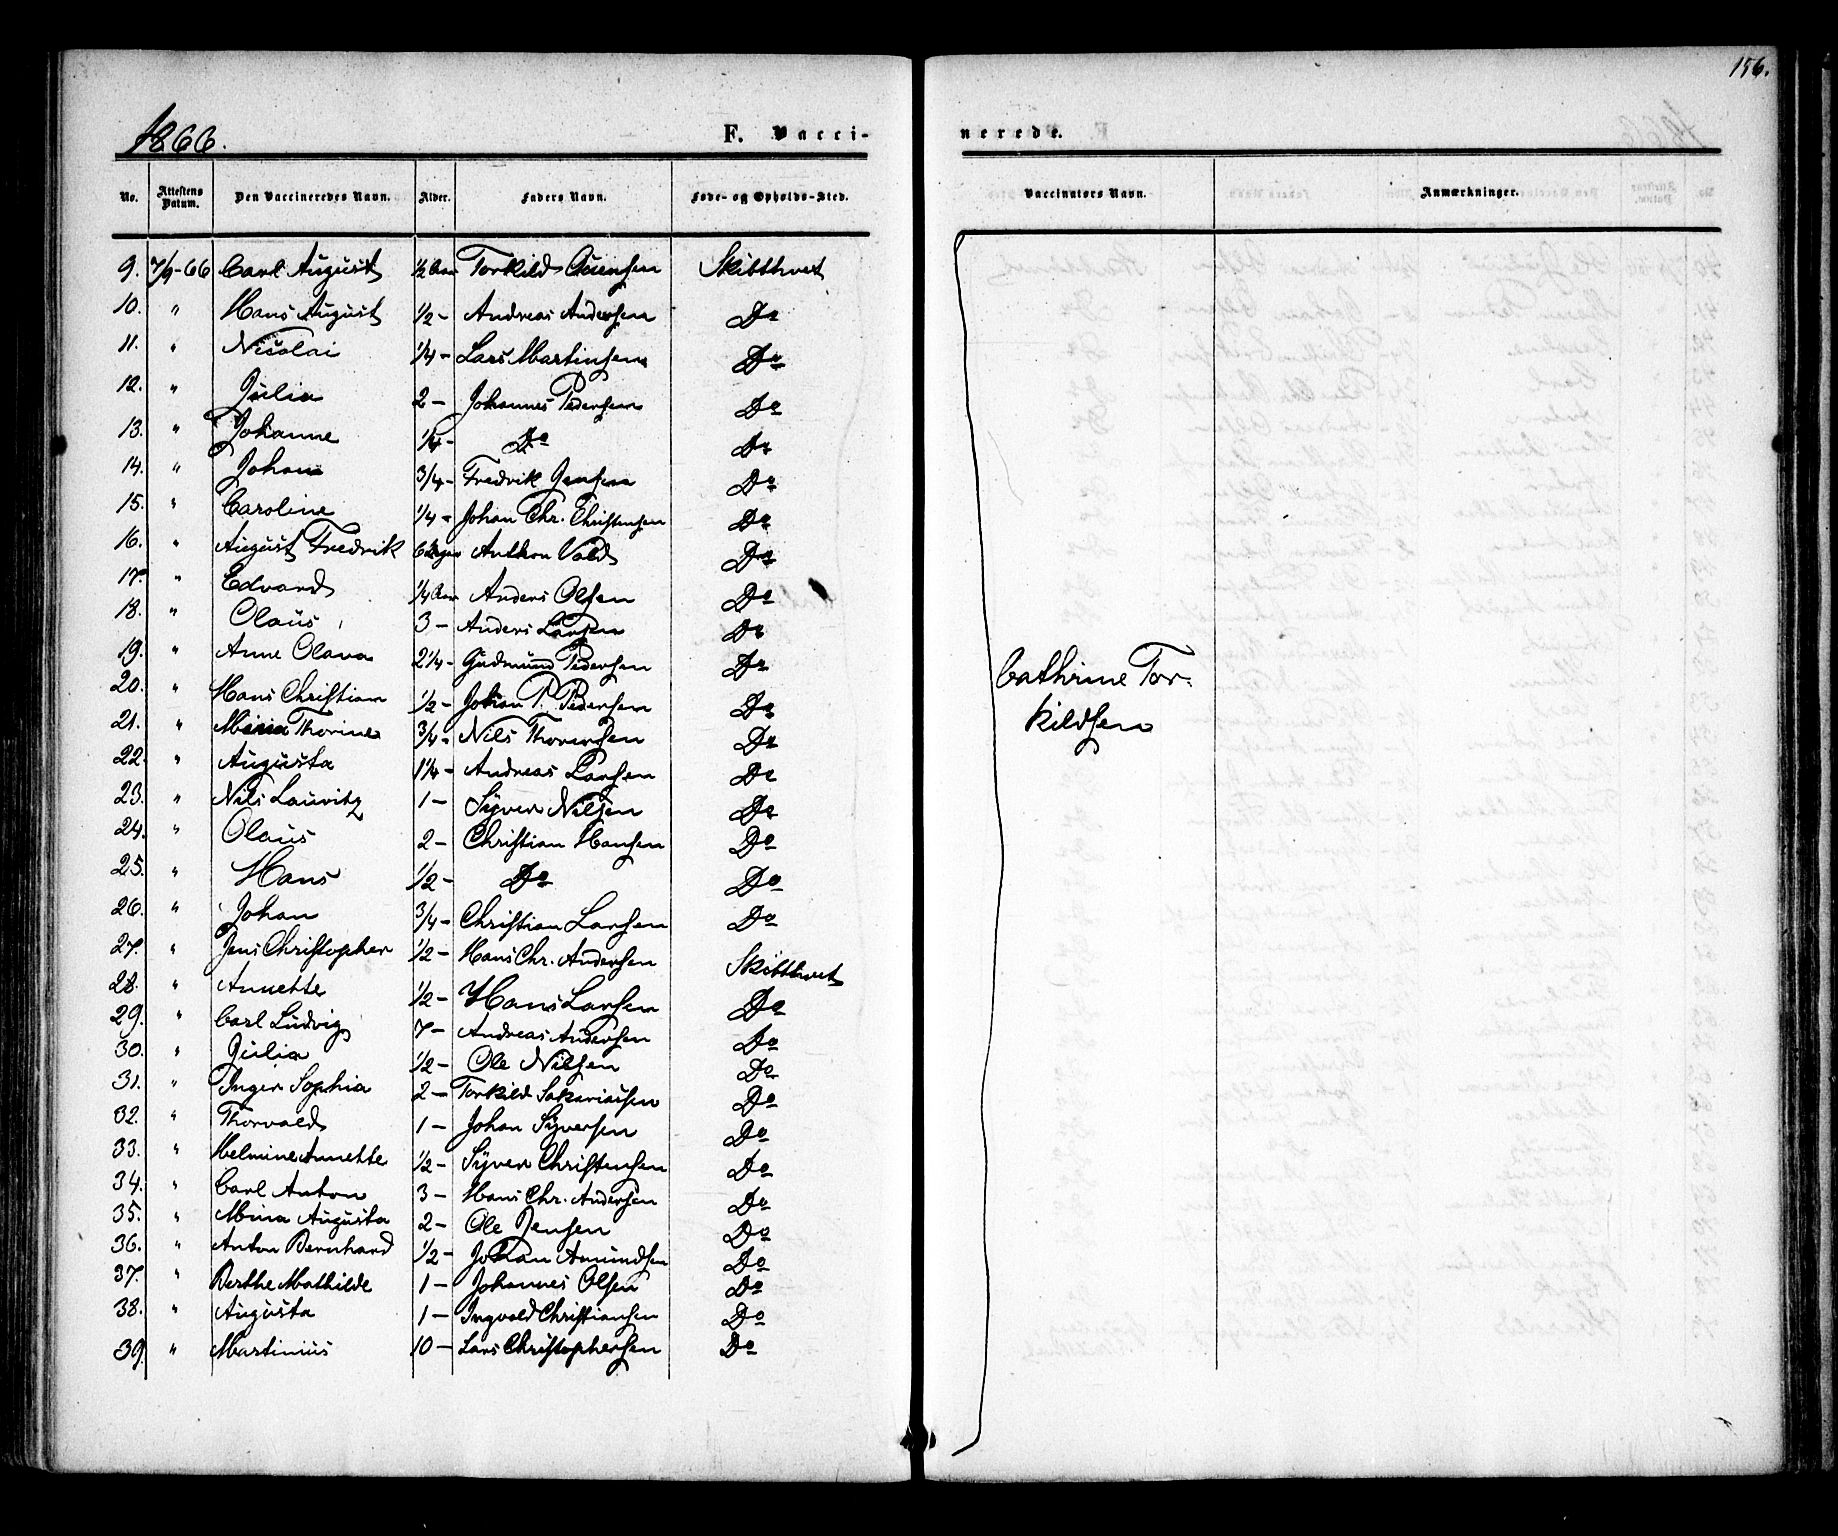 156.
1866.
F. Vacci-
nerede.
No. Attestens Datum. Den Vaccineredes Navn. Alder. Faders Navn. Føde- og Opholds-Sted. Vaccinatørs Navn. Anmærkninger.
9. 7/9-66 Carl August 1/2 Aar Torkild Skibthvet
10. " Hans August 1/2 - Andreas Andersen Do
11. " Nicolai 1/4 - Lars Martinsen Do
12. " Julia 2 - Johannes Pedersen Do
13. " Johanne 1/4 - Do Do
14. " Johan 3/4 - Fredrik Jensen Do
15. " Caroline 1/4 - Johan Chr. Christensen Do
16. " August Fredrik Anthon Vold Do
17. " Edvard 1/4 Aar Anders Olsen Do
18. " Olaus 3 - Anders Larsen Do
19. " Anne Olava 2 1/4 - Gudmund Pedersen Do
20. " Hans Christian 1/2 - Johan P. Pedersen Do
21. " Maria Thorine 3/4 - Nils Thoresen Do
22. " Augusta 1 1/4 - Andreas Larsen Do
23. " Nils Lauritz 1 - Syver Nilsen Do
24. " Olaus 2 - Christian Hansen Do
25. " Hans 1/2 - Do Do
26. " Johan 3/4 - Christian Larsen Do
27. " Jens Christopher 1/2 - Hans Chr. Andersen Skibthvet
28. " Annette 1/2 - Hans Larsen Do
29. " Carl Ludvig 7 - Andreas Andersen Do
30. " Julia 1/2 - Ole Nilsen Do
31. " Inger Sophia 2 - Torkild Sakariasen Do
32. " Thorvald 1 - Johan Syversen Do
33. " Helmine Annette 1/2 - Syver Christensen Do
34. " Carl Anton 3 - Hans Chr. Andersen Do
35. " Mina Augusta 2 - Ole Jensen Do
36. " Anton Bernhard 1/2 - Johan Amundsen Do
37. " Berthe Mathilde 1 - Johannes Olsen Do
38. " Augusta 1 - Ingvald Christiansen Do
39. " Martinius 10 - Lars Christophersen Do
Cathrine Tor-
kildsen